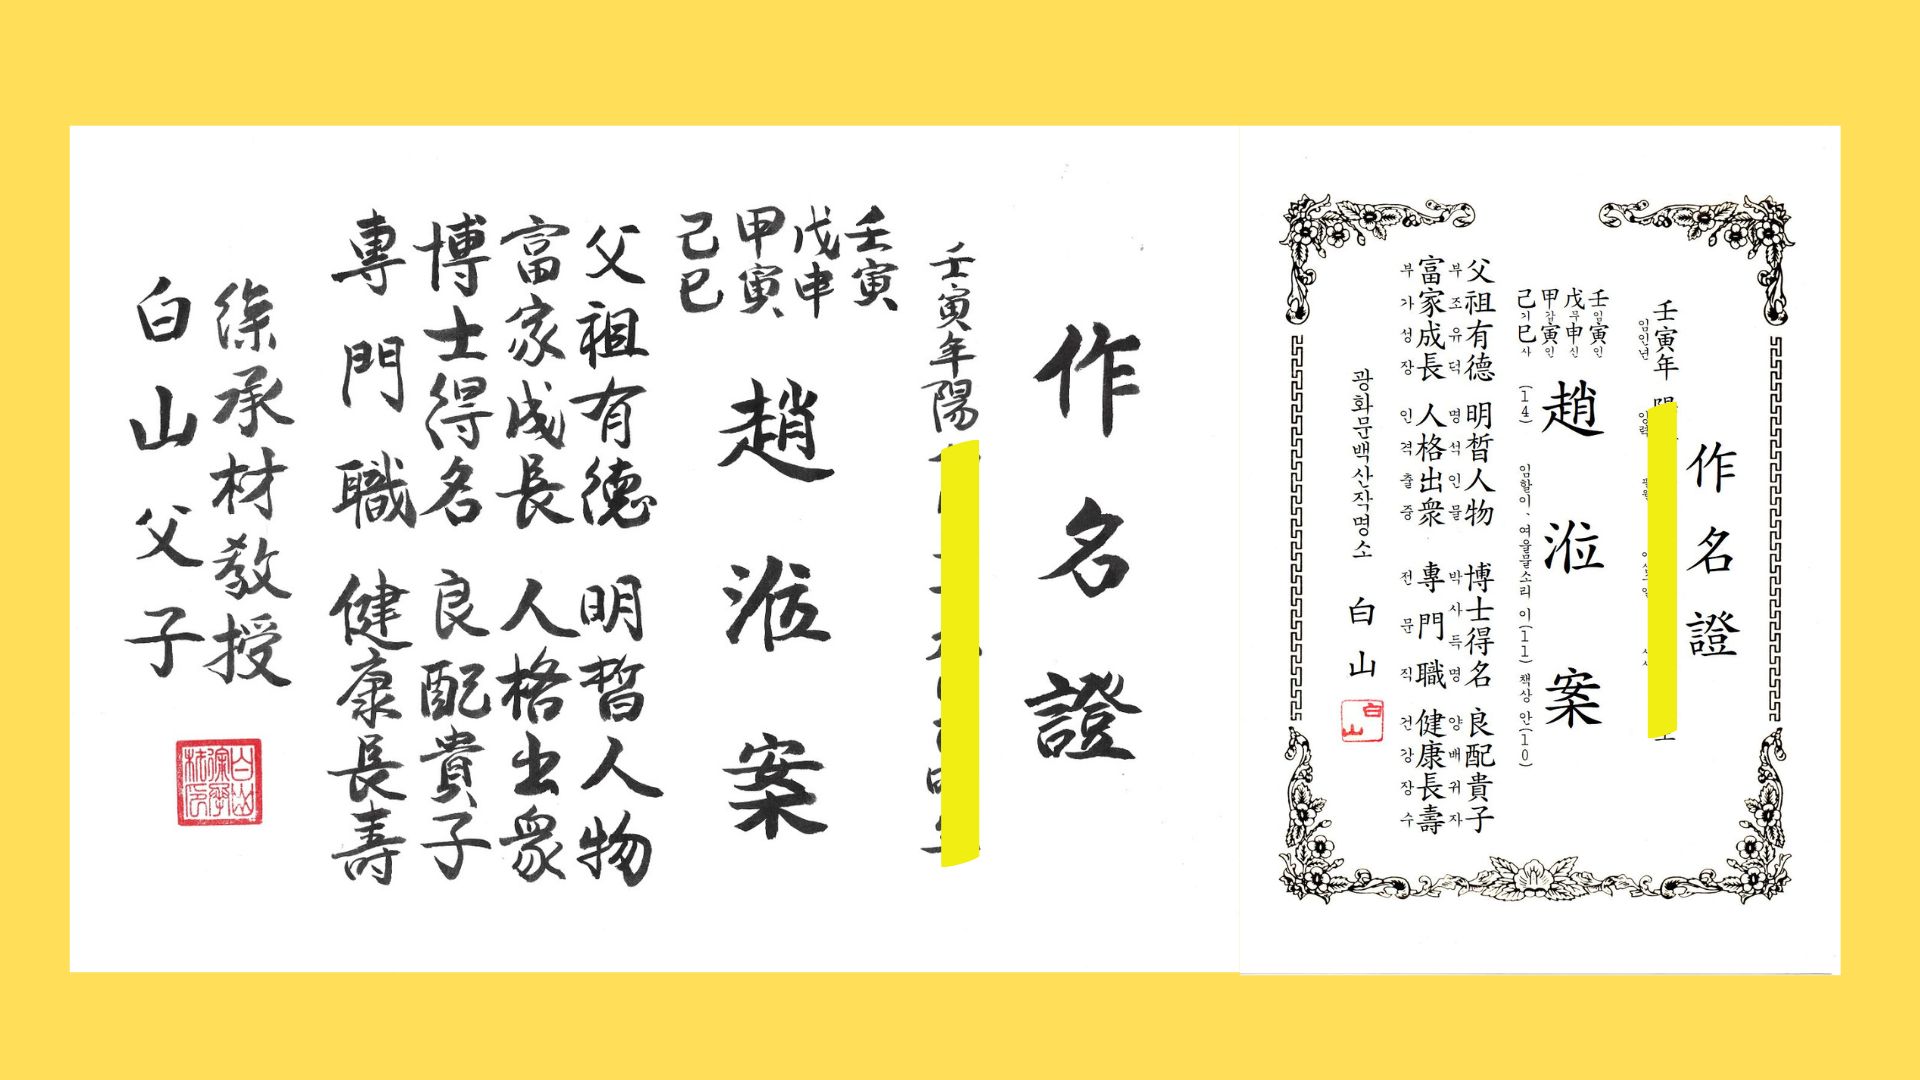 作名證
壬寅年陽
壬寅
戊申
甲寅
己巳
趙涖案
父祖有德 明晳人物
富家成長 人格出衆
博士得名 良配貴子
專門職 健康長壽
徐承材敎授
白山父子
作名證
壬寅年
임인년 양력
壬임寅인
戊무申신
甲갑寅인
己기巳사
趙涖案
(14) 임할이, 여울물소리 이(11) 책상 안(10)
父祖有德 明晳人物 博士得名 良配貴子
부조유덕 명석인물 박사득명 양배귀자
富家成長 人格出衆 專門職 健康長壽
부가성장 인격출중 전문직 건강장수
광화문백산작명소 白山
白山